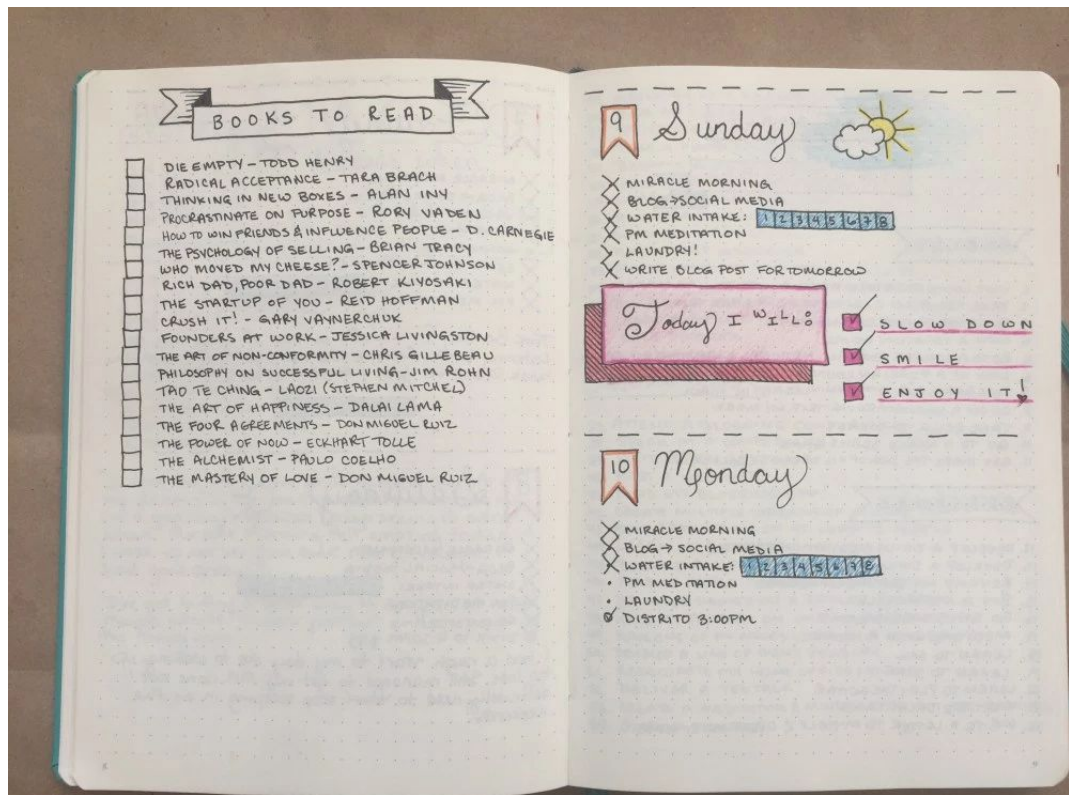 BOOKS TO READ
DIE EMPTY - TODD HENRY
RADICAL ACCEPTANCE - TARA BRACH
THINKING IN NEW BOXES - ALAN INY
PROCRASTINATE ON PURPOSE - RORY VADEN
HOW TO WIN FRIENDS & INFLUENCE PEOPLE - D. CARNEGIE
THE PSYCHOLOGY OF SELLING - BRIAN TRACY
WHO MOVED MY CHEESE? - SPENCER JOHNSON
RICH DAD, POOR DAD - ROBERT KIYOSAKI
THE STARTUP OF YOU - REID HOFFMAN
CRUSH IT! - GARY VAYNERCHUK
FOUNDERS AT WORK - JESSICA LIVINGSTON
THE ART OF NON-CONFORMITY - CHRIS GILLEBEAU
PHILOSOPHY ON SUCCESSFUL LIVING - JIM ROHN
TAO TE CHING - LAOZI (STEPHEN MITCHEL)
THE ART OF HAPPINESS - DALAI LAMA
THE FOUR AGREEMENTS - DON MIGUEL RUIZ
THE POWER OF NOW - ECKHART TOLLE
THE ALCHEMIST - PAULO COELHO
THE MASTERY OF LOVE - DON MIGUEL RUIZ
9 Sunday
MIRACLE MORNING
BLOG → SOCIAL MEDIA
WATER INTAKE: 1 2 3 4 5 6 7 8
PM MEDITATION
LAUNDRY!
WRITE BLOG POST FOR TOMORROW
Today I WILL:
SLOW DOWN
SMILE
ENJOY IT!
10 Monday
MIRACLE MORNING
BLOG → SOCIAL MEDIA
WATER INTAKE: 1 2 3 4 5 6 7 8
PM MEDITATION
LAUNDRY
DISTRITO 3:00PM